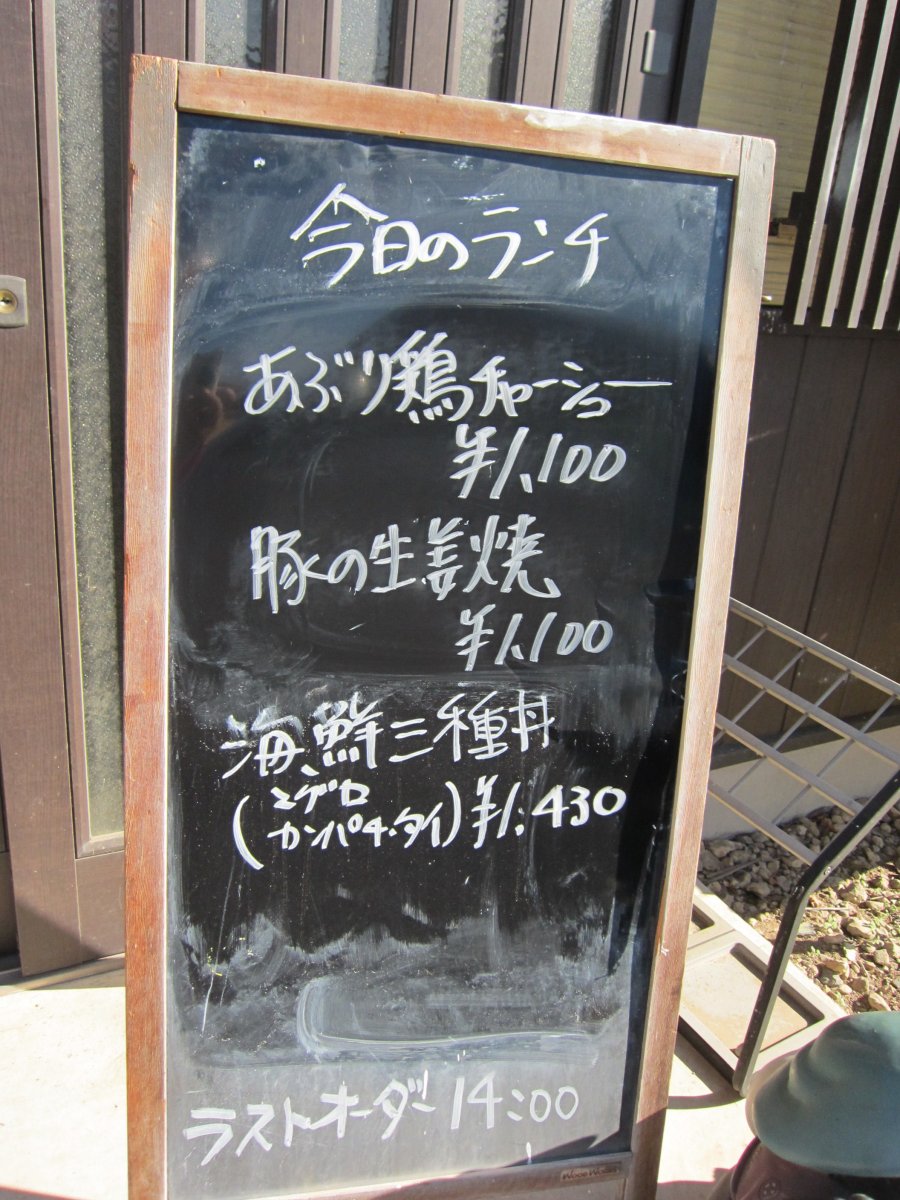 今日のランチ
あぶり鶏チャーシュー
¥1,100
豚の生姜焼
¥1,100
海鮮三種丼
(ミゲロ
カンパチ・タイ) ¥1,430
ラストオーダー 14:00
Wood Works